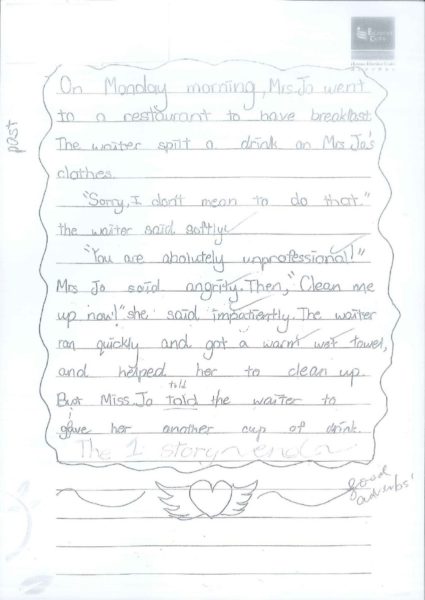 past
On Monday morning, Mrs. Jo went
to a restaurant to have breakfast.
The waiter spilt a drink on Mrs Jo's
clothes.
"Sorry, I don't mean to do that."
the waiter said softly.
"You are abolutely unprofessional!"
Mrs Jo said angrity. Then, "Clean me
up now!" she said impatiently. The waiter
ran quickly and got a warm wet towel,
and helped her to clean up.
told
But Miss. Jo told the waiter to
gave her another cup of drink.
The 1 story end
good
adverbs!